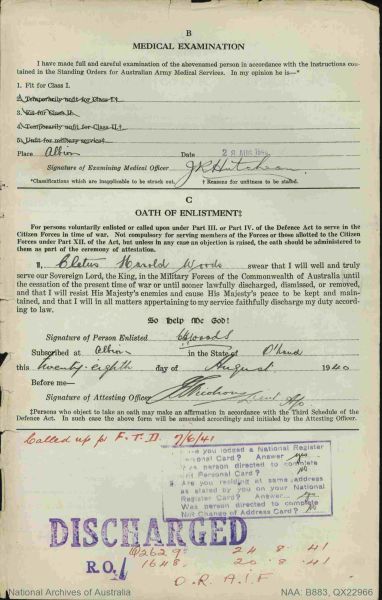 B
MEDICAL EXAMINATION
I have made full and careful examination of the abovenamed person in accordance with the instructions con-
tained in the Standing Orders for Australian Army Medical Services. In my opinion he is—*
1. Fit for Class I.
2. Temporarily unfit for Class I.†
3. Fit for Class II.
4. Temporarily unfit for Class II.†
5. Unfit for military service†
Place Albion Date 28 AUG 1940
Signature of Examining Medical Officer J R Hutcheon
*Classifications which are inapplicable to be struck out. † Reasons for unfitness to be stated.
C
OATH OF ENLISTMENT‡
For persons voluntarily enlisted or called upon under Part III. or Part IV. of the Defence Act to serve in the
Citizen Forces in time of war. Not compulsory for serving members of the Forces or those allotted to the Citizen
Forces under Part XII. of the Act, but unless in any case an objection is raised, the oath should be administered
to them as part of the ceremony of attestation.
I, Cletus Harold Woods swear that I will well and truly
serve our Sovereign Lord, the King, in the Military Forces of the Commonwealth of Australia until
the cessation of the present time of war or until sooner lawfully discharged, dismissed, or removed,
and that I will resist His Majesty's enemies and cause His Majesty's peace to be kept and main-
tained, and that I will in all matters appertaining to my service faithfully discharge my duty according
to law.
So Help Me God!
Signature of Person Enlisted CHWoods
Subscribed at Albion in the State of Q'land
this twenty-eighth day of August 1940
Before me—
Signature of Attesting Officer Lieut
‡Persons who object to take an oath may make an affirmation in accordance with Third Schedule of the
Defence Act. In such case the above form will be amended accordingly and initialed by the Attesting Officer.
Called up for F.T.D. 7/6/41
you lodged a National Register
Personal Card? Answer
Was person directed to complete
NR Personal Card?
2. Are you residing at same address
as stated by you on your National
Register Card? Answer
Was person directed to complete
NR Change of Address Card?
DISCHARGED
R.O. 2629 24.8.41
1648 20.8.41
O.R. A.I.F
National Archives of Australia NAA: B883, QX22966